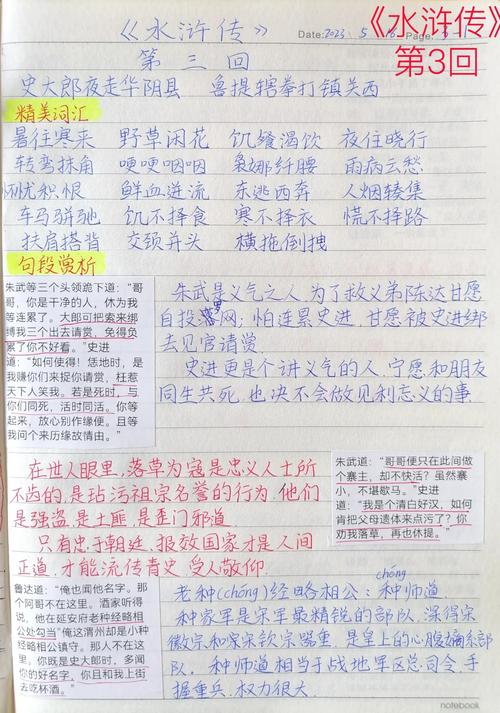 《水浒传》
Date: 2023 5
Page:
《水浒传》
第3回
第三回
史大郎夜走华阴县 鲁提辖拳打镇关西
精美词汇
暑往寒来 野草闲花 饥餐渴饮 夜住晓行
转弯抹角 哽哽咽咽 袅娜纤腰 雨病云愁
忧积恨 鲜血迸流 东逃西奔 人烟辏集
车马骈驰 饥不择食 寒不择衣 慌不择路
扶肩搭背 交颈并头 横拖倒拽
句段赏析
朱武等三个头领跪下道：“哥
哥，你是干净的人，休为我
等连累了。大郎可把索来绑
缚我三个出去请赏，免得负
累了你不好看。”史进
道：“如何使得！恁地时，是
我赚你们来捉你请赏，枉惹
天下人笑我。若是死时，与
你们同死，活时同活。你等
起来，放心别作缘便。且等
我问个来历缘故情由。”
朱武是义气之人，为了救义弟陈达甘愿
自投罗网；怕连累史进，甘愿被史进绑
去见官请赏。
史进更是个讲义气的人，宁愿和朋友
同生共死，也决不会做见利忘义的事
在世人眼里，落草为寇是忠义人士所
不齿的，是玷污祖宗名誉的行为，他们
是强盗，是土匪，是歪门邪道
只有忠于朝廷，报效国家才是人间
正道，才能流传青史，受人敬仰.
朱武道：“哥哥便只在此间做
个寨主，却不快活？虽然寨
小，不堪歇马。”史进
道：“我是个清白好汉，如何
肯把父母遗体来点污了？你
劝我落草，再也休提。”
鲁达道：“俺也闻他名字。那
个阿哥不在这里。洒家听得
说，他在延安府老种经略相
公处勾当。”俺这渭州却是小种
经略相公镇守。那人不在这
里。你既是史大郎时，多闻
你的好名字，你且和我上街
去吃杯酒。”
老种(chóng)经略相公：种师道 chóng
种家军是宋军最精锐的部队，深得宋
徽宗和宋钦宗器重，是皇上的心腹嫡系部
队. 种师道相当于战地军区总司令，手
握重兵，权力很大.
notebook